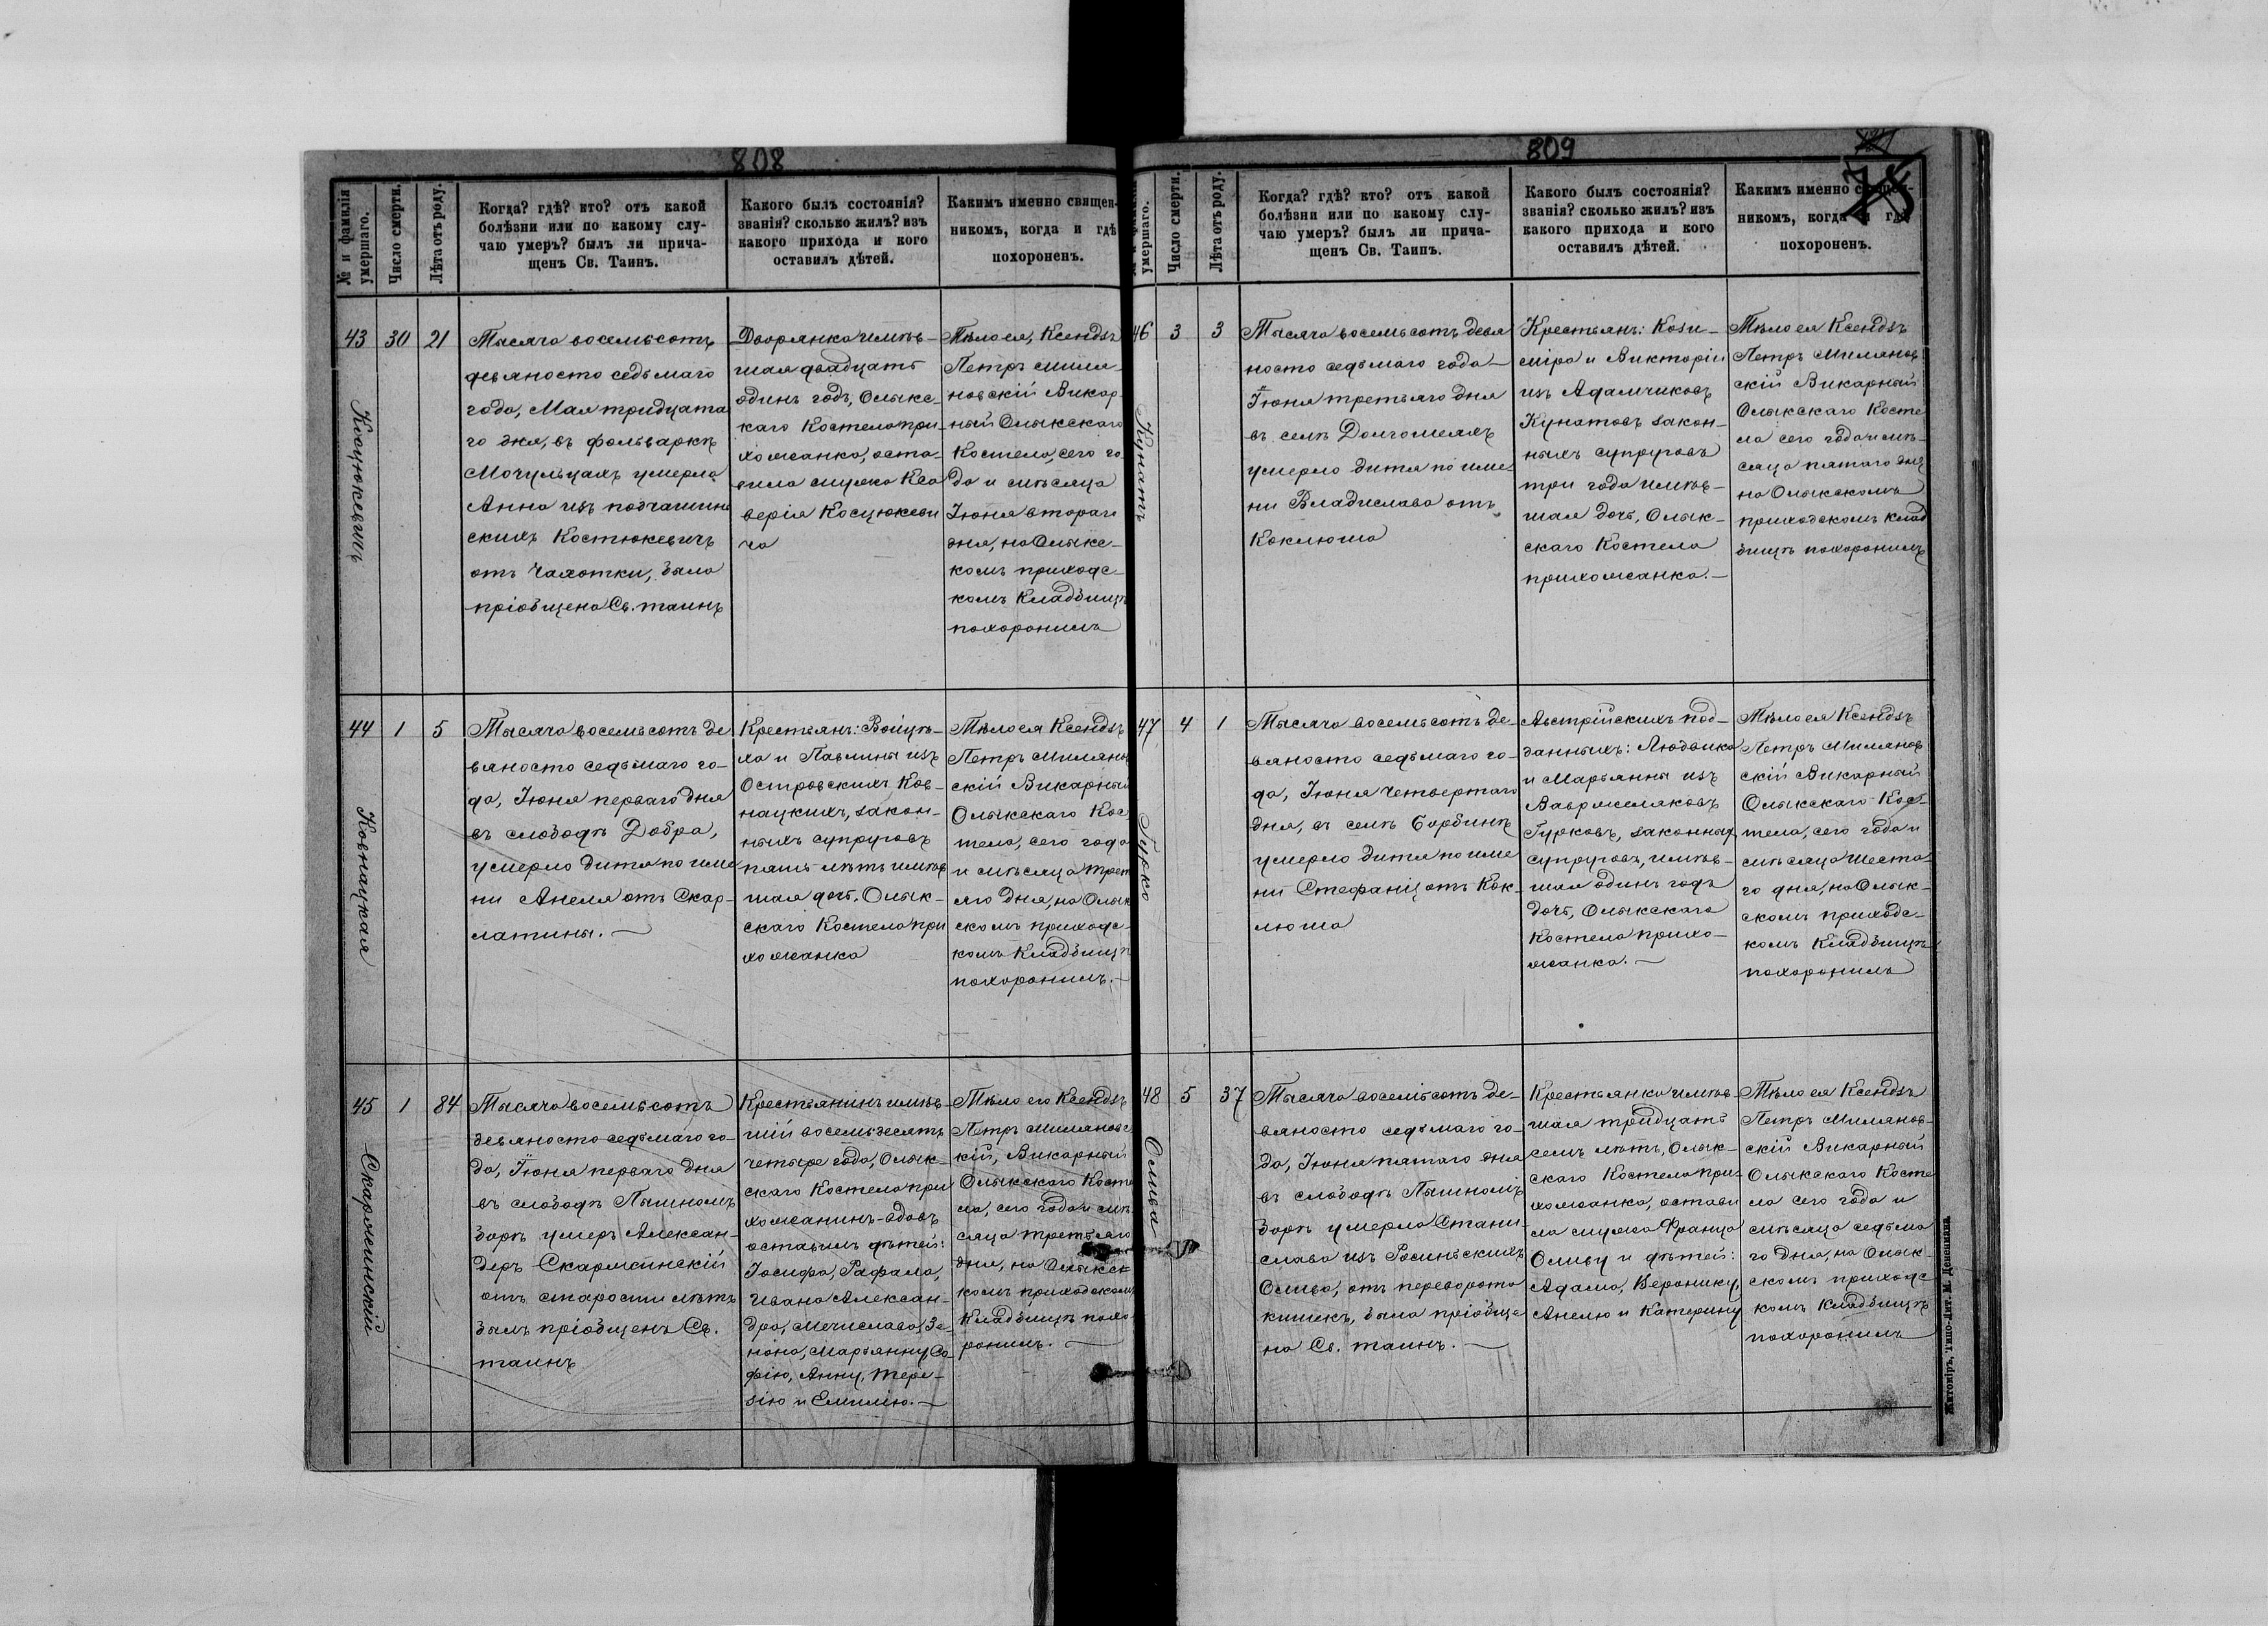 808
№ и фамилія
умершаго.
Число смерти.
Лѣта отъ роду.
Когда? гдѣ? кто? отъ какой
болѣзни или по какому слу-
чаю умеръ? былъ ли прича-
щенъ Св. Таинъ.
Какого былъ состоянія?
званія? сколько жилъ? изъ
какого прихода и кого
оставилъ дѣтей.
Какимъ именно священ-
никомъ, когда и гдѣ
похороненъ.
43
Косцюкевичъ
30
21
Тысяча восемьсотъ
девяносто седьмаго
года, Мая тридцата
го дня, въ фольваркѣ
Мочульцахъ умерла
Анна изъ подчашин
скихъ Костюкевичъ
отъ Чахотки, была
пріобщена Св. таинъ
Дворянка имѣв-
шая двадцать
одинъ годъ, Олыкс-
каго Костела при-
хожанка, оста-
вила мужа Кса
верія Косцюкеви
ча
Тѣло ея, Ксендзъ
Петръ Миля-
новскій Викар-
ный Олыкскаго
Костела, сего го
да и мѣсяца
Іюня втораго
дня, на Олыкс-
комъ приходс-
комъ Кладбищѣ
похоронилъ
44
Ковнацкая
1
5
Тысяча восемьсотъ де
вяносто седьмаго го-
да, Іюня перваго дня
въ слободѣ Добра,
умерло дитя по име
ни Анеля отъ Скар-
латины. —
Крестьянъ: Войцѣ-
ха и Павлины изъ
Островскихъ Ков-
нацкихъ, закон-
ныхъ супруговъ
пять лѣтъ имѣв
шая дочь, Олык-
скаго Костела при
хожанка
Тѣло ея Ксендзъ
Петръ Милянов
скій Викарный
Олыкскаго Кос
тела, сего года
и мѣсяца трет
яго дня, на Олык
скомъ приходс-
комъ Кладбищѣ
похоронилъ. —
45
Скаржинскій
1
84
Тысяча восемьсотъ
девяносто седьмаго го-
да, Іюня перваго дня
въ слободѣ Пышномъ
борѣ умеръ Алексан-
деръ Скаржинскій
отъ старости лѣтъ
былъ пріобщенъ Св.
таинъ
Крестьянинъ имѣв-
шій восемьдесятъ
четыре года, Олык-
скаго Костела при
хожанинъ-вдовъ
оставилъ дѣтей:
Іосифа, Рафала,
Ивана Алексан-
дра, Мечислава, Зе-
нона, Марьянну, Со
фію, Анну, Тере-
зію и Емилію. —
Тѣло его Ксендзъ
Петръ Миляновс
кій, Викарный
Олыкскаго Косте
ла, сего года и мѣ
сяца третьяго
дня, на Олыкск
комъ приходскомъ
Кладбищѣ похо
ронилъ. —
809
умершаго.
Число смерти.
Лѣта отъ роду.
Когда? гдѣ? кто? отъ какой
болѣзни или по какому слу-
чаю умеръ? былъ ли прича-
щенъ Св. Таинъ.
Какого былъ состоянія?
званія? сколько жилъ? изъ
какого прихода и кого
оставилъ дѣтей.
Какимъ именно священ-
никомъ, когда и гдѣ
похороненъ.
46
Кунатъ
3
3
Тысяча восемьсотъ девя
носто седьмаго года —
Іюня третьяго дня
въ селѣ Долгошеяхъ
умерло дитя по име
ни Владислава отъ
Коклюша
Крестьянъ: Кази-
міра и Викторіи
изъ Адамчиковъ
Кунатовъ закон-
ныхъ супруговъ
три года имѣв-
шая дочь, Олык-
скаго Костела
прихожанка. —
Тѣло ея Ксендзъ
Петръ Милянов
скій Викарный
Олыкскаго Косте
ла сего года и мѣ-
сяца пятаго дня
на Олыкскомъ
приходскомъ Клад
бищѣ похоронилъ
47
Гурко
4
1
Тысяча восемьсотъ де-
вяносто седьмаго го-
да, Іюня четвертаго
дня, въ селѣ Борбинѣ
умерло дитя по име
ни Стефанія отъ Кок-
люша
Австрійскихъ под-
данныхъ: Людвика
и Марьянны изъ
Гурковъ, законныхъ
супруговъ, имѣв-
шая одинъ годъ
дочь, Олыкскаго
Костела прихо-
жанка. —
Тѣло ея Ксендзъ
Петръ Милянов
скій Викарный
Олыкскаго Кос-
тела, сего года и
мѣсяца шеста
го дня, на Олык-
скомъ приходс-
комъ Кладбищѣ
похоронилъ
48
Олива
5
37
Тысяча восемьсотъ де-
вяносто седьмаго го-
да, Іюня пятаго дня
въ слободѣ Пышномъ
борѣ умерла Стани-
слава изъ Росинскихъ
Олива, отъ переворота
кишекъ, была пріобще
на Св. таинъ. —
Крестьянка имѣв-
шая тридцать
семъ лѣтъ, Олык-
скаго Костела при-
хожанка, остави
ла мужа Франца
Оливу и дѣтей:
Адама, Веронику,
Анелю и Катерину
Тѣло ея Ксендзъ
Петръ Милянов-
скій Викарный
Олыкскаго Косте
ла сего года и
мѣсяца седьма
го дня, на Олык-
скомъ приходс
комъ Кладбищѣ
похоронилъ
Житоміръ, типо-Лит. М. Дененмана.